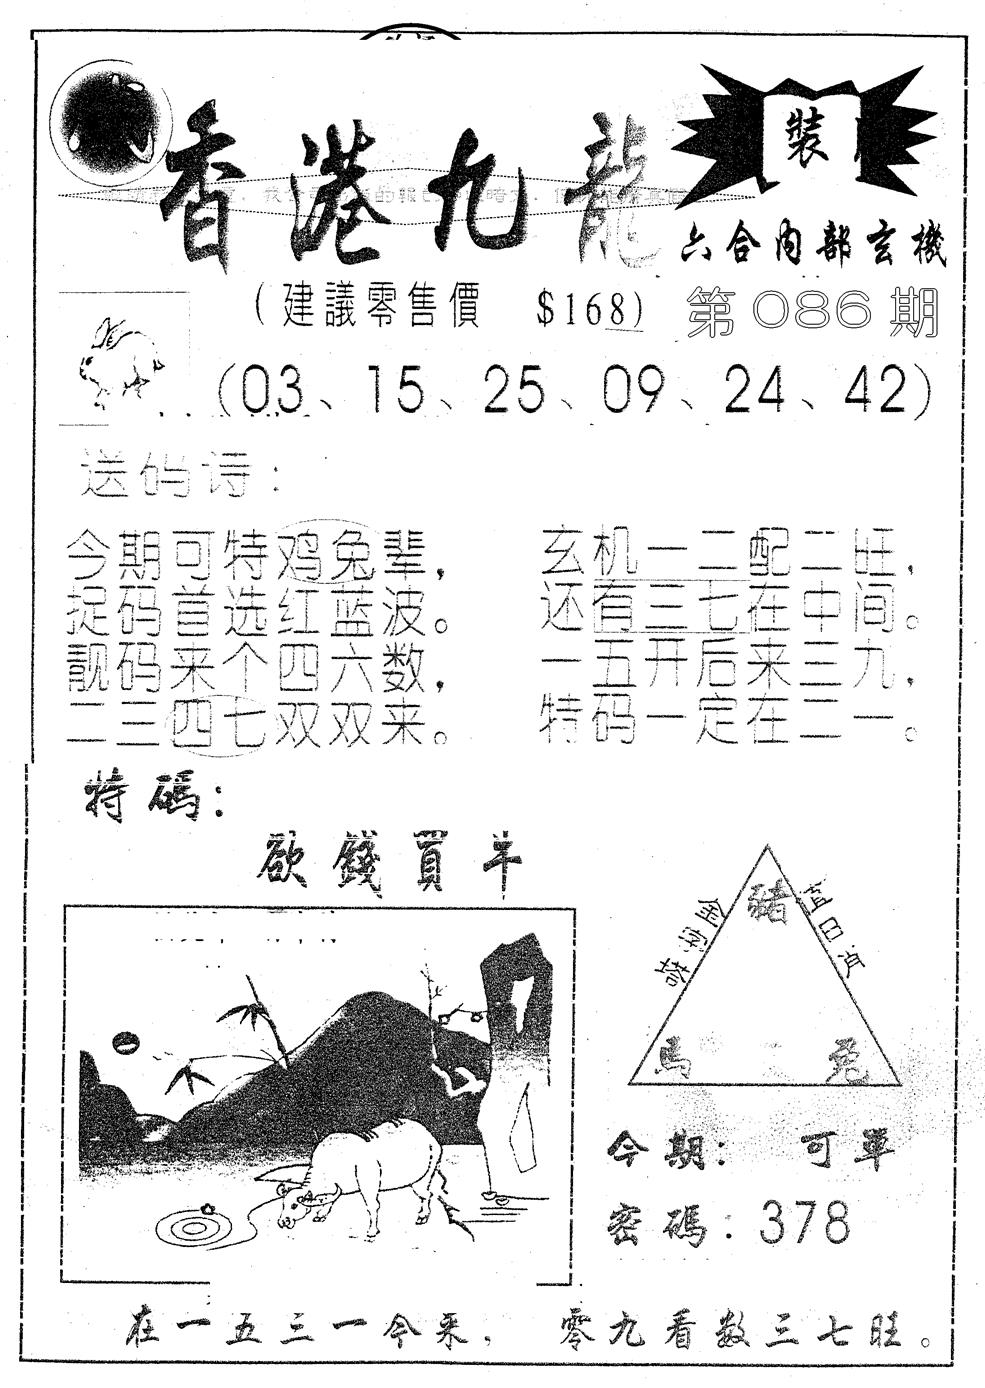 香港九龍
裝
六合内部玄機
(建議零售價 $168)
第086期
(03、15、25、09、24、42)
送码诗:
今期可特鸡兔辈，
捉码首选红蓝波。
靓码来个四六数，
二三四七双双来。
玄机一二配二旺，
还有三七在中间。
一五开后来三九，
特码一定在二一。
特碼:
欲錢買牛
金字塔
豬
馬
兔
今期: 可單
密碼:378
在一五三一今来，零九看数三七旺。